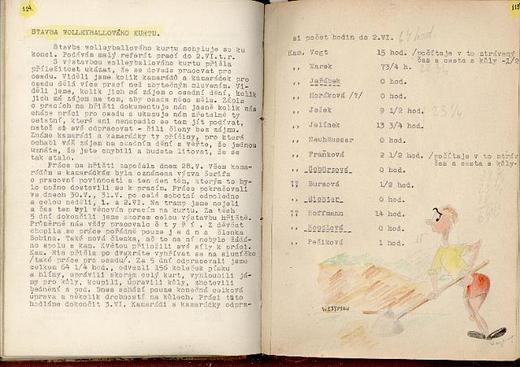 114
STAVBA WOLLEYBALLOVÉHO KURTU.
Stavba wolleyballového kurtu schyluje se ku
konci. Podávám malý referát prací do 2.VI.t.r.
S výstavbou wolleyballového kurtu přišla
příležitost ukázat, že se dovede pracovat pro
osadu. Viděli jsme kolik kamarádů a kamarádek pro
osadu dělá více prací než zbytečným mluvením. Vi-
děli jsme, kolik jich má zájem o osadní dění, kolik
jich má zájem na tom, aby osada něco měla. Zápis
o pracích na hřišti dokumentuje nám jasně kolik nás
chápe práci pro osadu a ukazuje nám zřetelně ty
ostatní, které ani nenapadlo se tam jít podívat,
natož si své odpracovat - Říti členy bez zájmu.
Známe kamarádi a kamarádky ty příčiny, pro které
ochabl váš zájem na osadním dění a věřte, že jednou
uznáte, že jste chybili a budete litovat, že se
tak stalo.
Práce na hřišti započala dnem 28.V. Všem kama-
rádům a kamarádkám byla oznámena výzva Šerifa
o pracovní povinnosti na ten den, kterým to by-
lo možno dostavili se k pracím. Práce pokračovali
ve dnech 30.V., 31.V. po celé sobotní odpoledne
a celou neděli, 1. a 2.VI. Na tramp jsme nejeli
a čas ten byl věnován pracím na kurtu. Za těch
5 dní dokončili jsme skorem celou výstavbu hřiště.
Průměrně nás vždy pracovalo č t y ř i . Z děvčat
chopila se práce pořádně pouze j e d n a členka
Bobina. Také nová členka, ač to na ní nebylo žádá-
no spolu s kam. Květou přiložili své síly k práci.
Kam. Ria přišla po dvakráte vyhřívat se na sluníčko
/také práce pro osadu/. Za 5 dní odpracovali jsme
celkem 64 1/4 hod., odvezli 156 koleček písku
a hlíny, zprávili skorem celý kurt, vyhloubili já-
my pro kůly, koupili, upravili kůly, zhotovili
bednění a pod. Dnes schází pouze konečná celková
úprava a několik drobností na kůlech. Práci tuto
hodláme dokončit 3.VI. Kamarádi a kamarádky odpra-
115
si počet hodin do 2.VI. 64 hod.
Kam. Vogt 15 hod. /počítaje v to strávený
čas a cesta s kůly -1/2
,, Marek 73/4 h.
,, Jeřábek 0 hod.
,, Horáková /?/ 0 hod.
,, Ježek 9 1/2 hod. 23 1/4
,, Jelínek 13 3/4 hod.
,, Neuhäusser 0 hod.
,, Fraňková 2 1/2 hod. /počítaje v to stráv.
čas a cesta s kůly-
,, 0 hod.
,, Bursová 1/2 hod.
,, 0 hod.
,, Hoffmann 14 hod.
,, 0 hod.
,, Pešíková 1 hod.